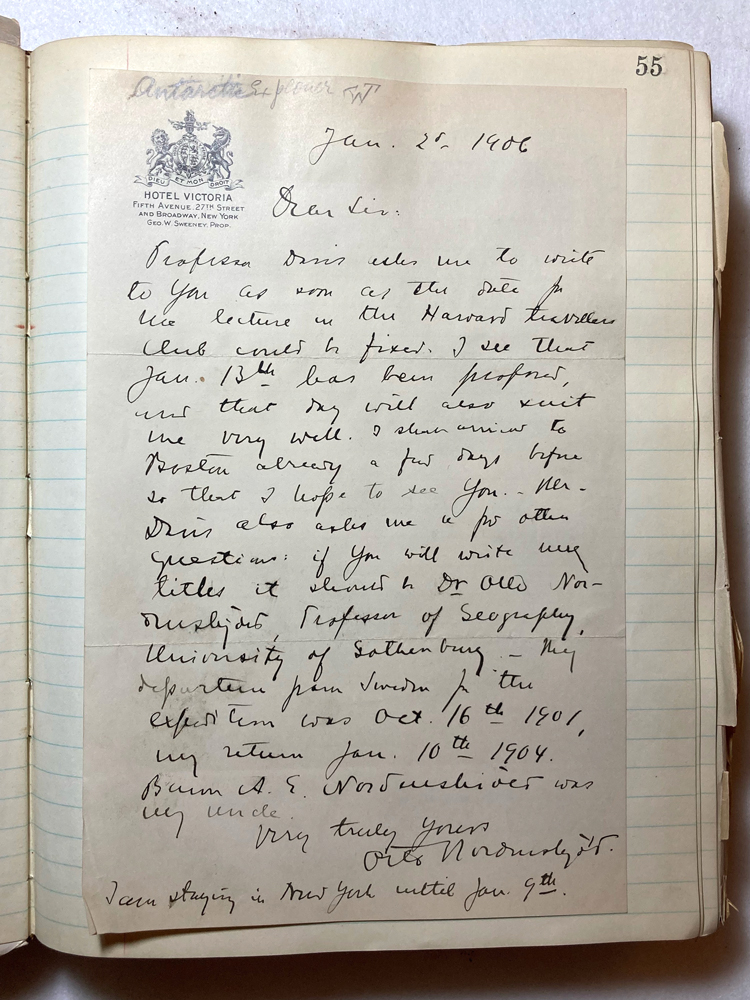 55
Antarctic Explorer
Jan. 2d. 1906
DIEU ET MON DROIT
HOTEL VICTORIA
FIFTH AVENUE, 27TH STREET
AND BROADWAY, NEW YORK
GEO. W. SWEENEY, PROP.
Dear Sir:
Professor Davis asks me to write
to You as soon as the date for
the lecture in the Harvard travellers
Club could be fixed. I see that
Jan. 13th has been proposed,
and that day will also suit
me very well. I shall arrive to
Boston already a few days before
so that I hope to see You. - Mr.
Davis also asks me a few other
questions: if You will write my
titles it should be Dr Otto Nor-
denskjöld, Professor of Geography,
University of Gothenburg. - My
departure from Sweden for the
expedition was Oct. 16th 1901,
my return Jan. 10th 1904.
Baron A. E. Nordenskiöld was
my uncle.
Very truly Yours
Otto Nordenskjöld.
I am staying in New York until Jan. 9th.